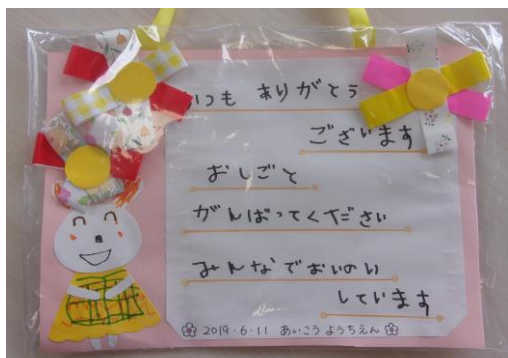 いつも ありがとう
ございます
おしごと
がんばってください
みんなでおいのり
しています
2019・6・11 あいこうようちえん